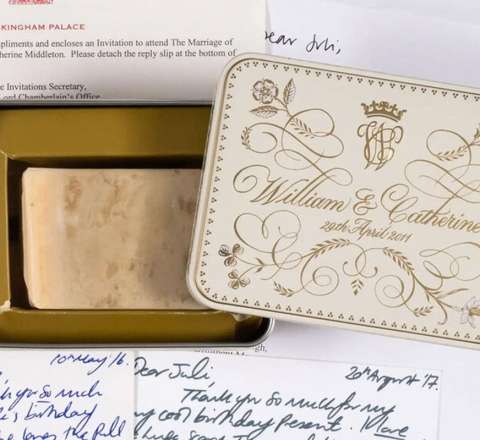 KINGHAM PALACE
pliments and encloses an Invitation to attend The Marriage of
therine Middleton. Please detach the reply slip at the bottom of
e Invitations Secretary,
Lord Chamberlain's Office
ear Juli,
William & Catherine
29th April 2011
10th May 16.
k you so much
birthday
Dear Juli,
20th August '17
Thank you so much for my
cool birthday present.